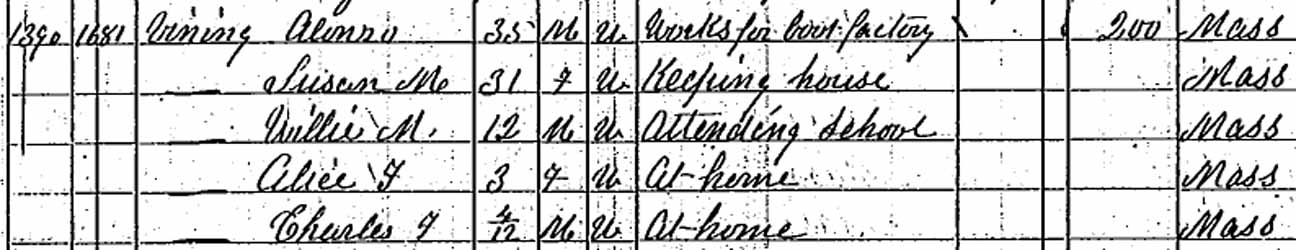 1390 1681 Vining Alonzo 35 M W Works for boot factory 200 Mass
— Susan M 31 F W Keeping house Mass
— Willie M. 12 M W Attending School Mass
— Alice F 3 F W At home Mass
— Charles F 4/12 M W At home Mass